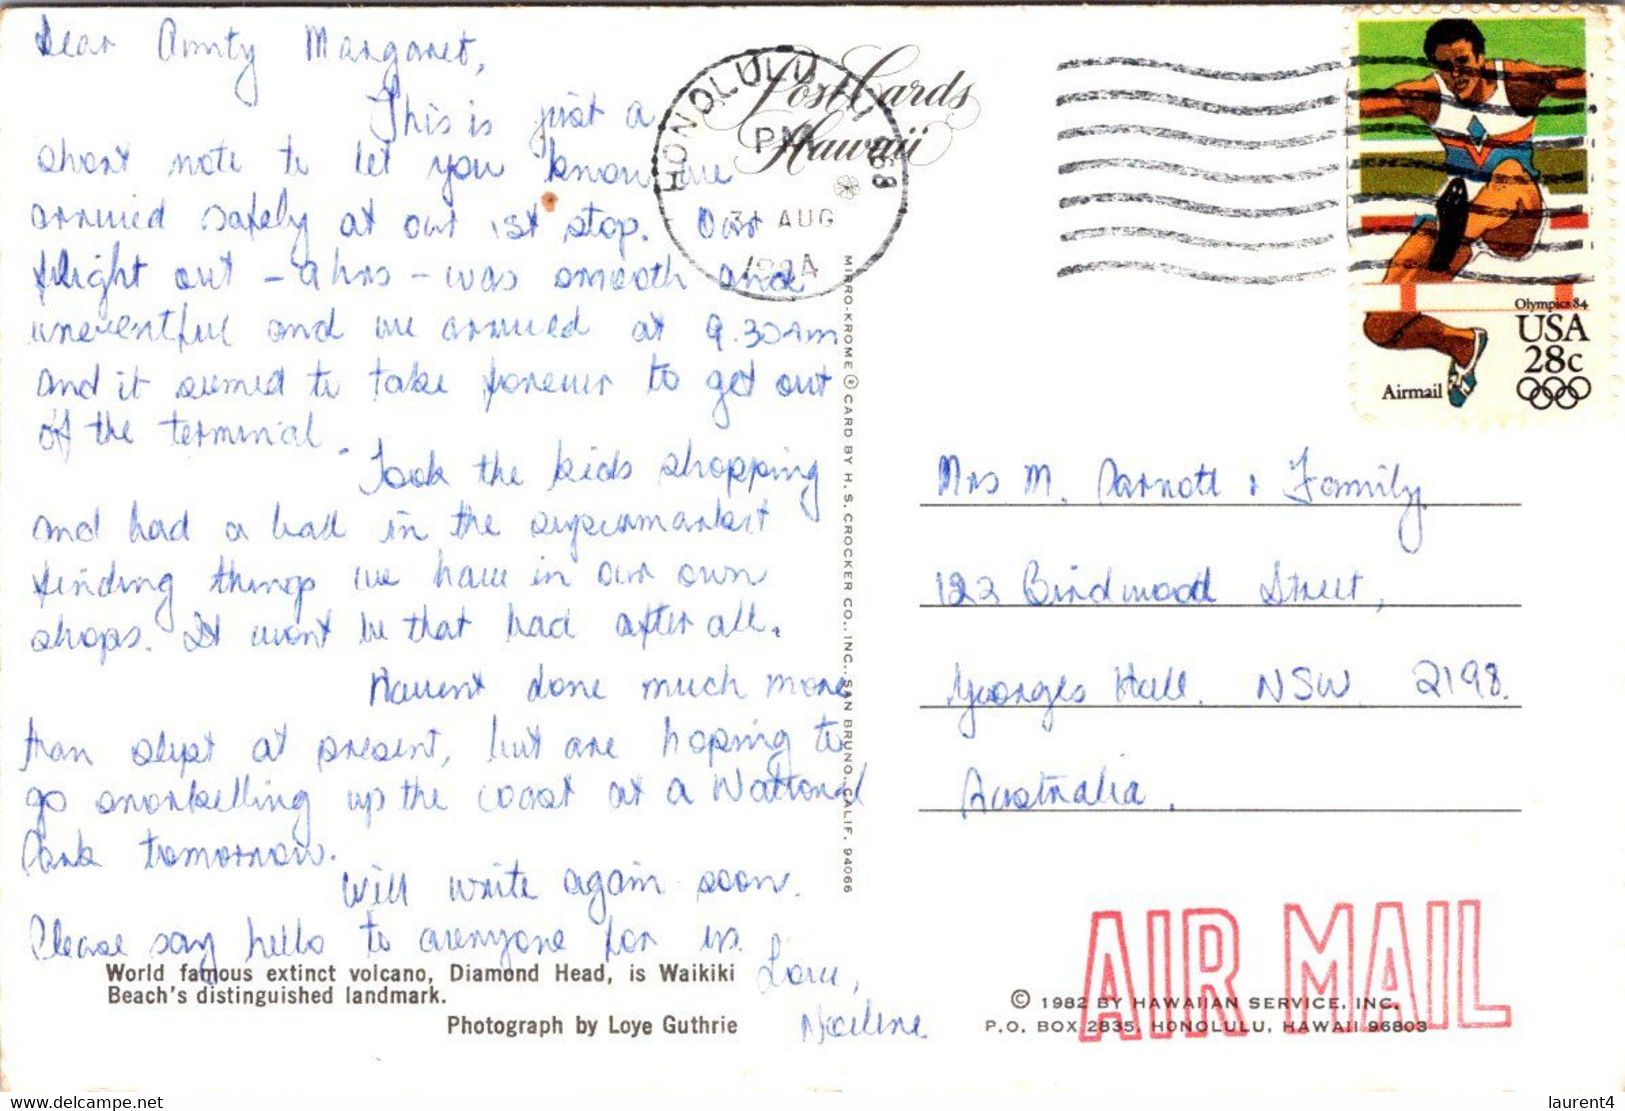 Dear Aunty Margaret,
This is just a
short note to let you know we
arrived safely at our 1st stop. Our
flight out - 9 hrs - was smooth and
uneventful and we arrived at 9.30am
and it seemed to take forever to get out
of the terminal.
Took the kids shopping
and had a ball in the supermarket
finding things we have in our own
shops. It wont be that bad after all.
Havent done much more
than slept at present, but are hoping to
go snorkelling up the coast at a National
Park tomorrow.
Will write again soon.
Please say hello to everyone for us.
Love,
World famous extinct volcano, Diamond Head, is Waikiki
Beach's distinguished landmark.
Photograph by Loye Guthrie
PostCards
Hawaii
HONOLULU, HI 968
PM
31 AUG
1984
MIRRO-KROME ® CARD BY H. S. CROCKER CO., INC., SAN BRUNO, CALIF. 94066
Olympics 84
USA
28c
Airmail
Mrs M. Darnott & Family
122 Birdwood Street,
Georges Hall. NSW 2198.
Australia.
AIR MAIL
© 1982 BY HAWAIIAN SERVICE, INC.
P.O. BOX 2835, HONOLULU, HAWAII 96803
delcampe.net
laurent4